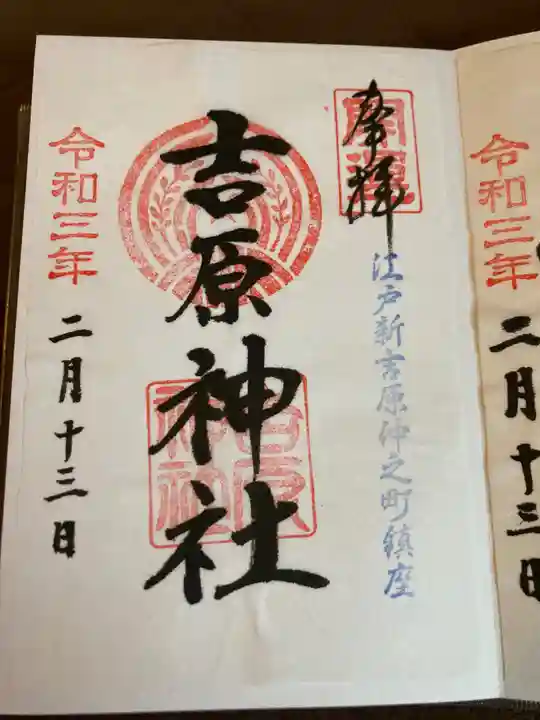 奉拝
開運
江戸新吉原仲之町鎮座
吉原神社
吉原神社
令和三年
二月十三日
令和三年
二月十三日